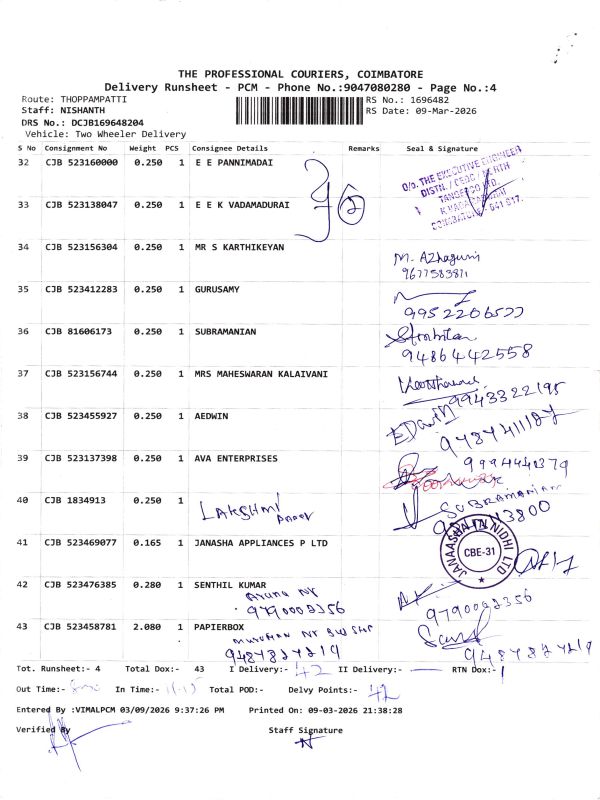 THE PROFESSIONAL COURIERS, COIMBATORE
Delivery Runsheet - PCM - Phone No.:9047080280 - Page No.:4
Route: THOPPAMPATTI RS No.: 1696482
Staff: NISHANTH RS Date: 09-Mar-2026
DRS No.: DCJB169648204
Vehicle: Two Wheeler Delivery
S No Consignment No Weight PCS Consignee Details Remarks Seal & Signature
32 CJB 523160000 0.250 1 E E PANNIMADAI
O/o. THE EXECUTIVE ENGINEER
DISTN. / CEDC / NORTH
TANGEDCO LTD.
COIMBATORE - 641 017.
33 CJB 523138047 0.250 1 E E K VADAMADURAI
34 CJB 523156304 0.250 1 MR S KARTHIKEYAN
M. Azhaguni
9677583811
35 CJB 523412283 0.250 1 GURUSAMY
9952206577
36 CJB 81606173 0.250 1 SUBRAMANIAN
9486442558
37 CJB 523156744 0.250 1 MRS MAHESWARAN KALAIVANI
9943322195
38 CJB 523455927 0.250 1 AEDWIN
EDawiN
9487411187
39 CJB 523137398 0.250 1 AVA ENTERPRISES
9994441379
40 CJB 1834913 0.250 1 LAKSHMI
SUBRAMANIAM
41 CJB 523469077 0.165 1 JANASHA APPLIANCES P LTD
JANAASHA IN NIDHI LTD
CBE-31
42 CJB 523476385 0.280 1 SENTHIL KUMAR
Aruna NK
9790002356 9790002356
43 CJB 523458781 2.080 1 PAPIERBOX
9487827219 9487827219
Tot. Runsheet:- 4 Total Dox:- 43 I Delivery:- 42 II Delivery:- RTN Dox:- 1
Out Time:- In Time:- Total POD:- Delvy Points:- 42
Entered By :VIMALPCM 03/09/2026 9:37:26 PM Printed On: 09-03-2026 21:38:28
Verified By Staff Signature